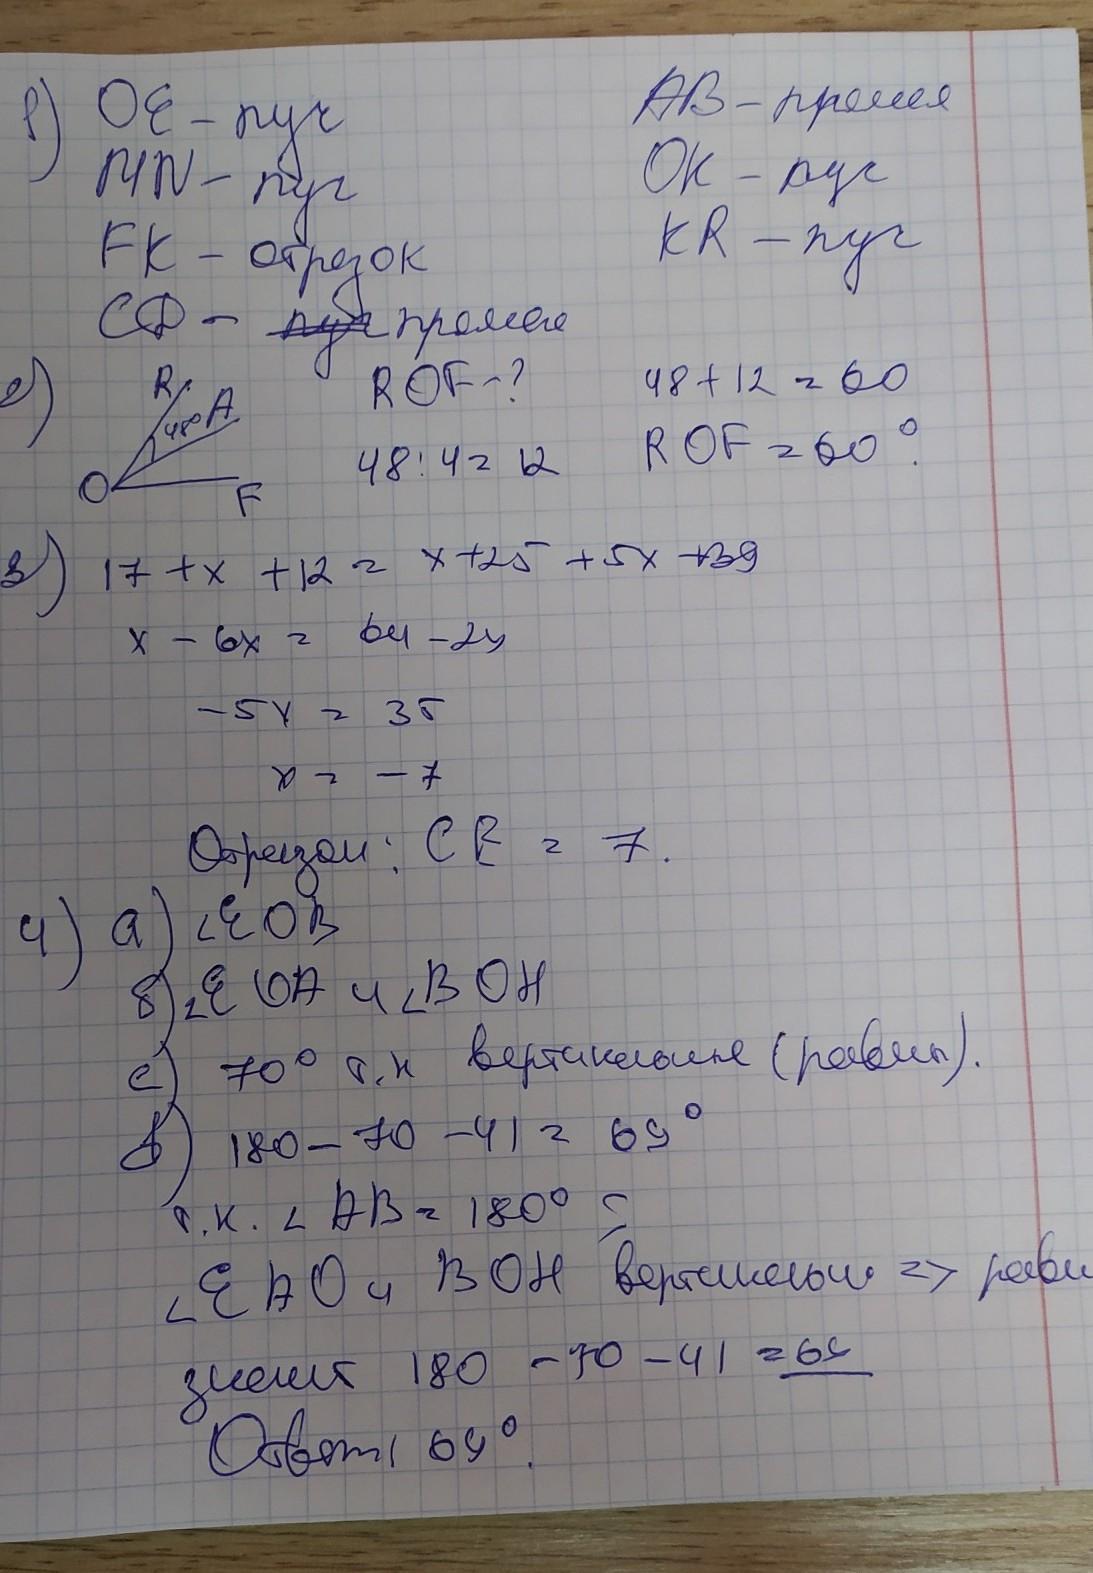 1) OE – луч AB – прямая
MN – луч OK – луч
FK – отрезок KR – луч
CD – прямая
2) R 48° A O F ROF – ? 48 + 12 = 60
48 : 4 = 12 ROF = 60°.
3) 17 + x + 12 = x + 25 + 5x + 39
x – 6x = 64 – 29
–5x = 35
x = – 7
Отрезок: CE = 7.
4) а) ∠EOB
б) ∠EOA и ∠BOH
c) 70° т.к вертикальные (равны).
d) 180 – 70 – 41 = 69°
т.к. ∠AB = 180°
∠EAO и BOH вертикальны => равн
значит 180 – 70 – 41 = 69
Ответ: 69°.